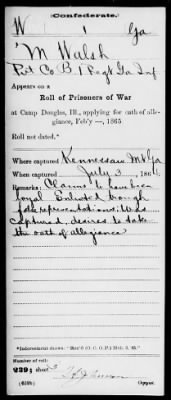 Confederate.
W 1 Ga
M Walsh
Pvt Co. B, 1 Reg't Ga Inf
Appears on a
Roll of Prisoners of War
at Camp Douglas, Ill., applying for oath of allegiance, Feb'y —, 1865
Roll not dated.*
Where captured Kennesaw Mt Ga
When captured July 3, 1864
Remarks: Claims to have been
loyal Enlisted through
false representations. Was
captured, desires to take
the oath of allegiance
Number of roll:
239; sheet
(639b) Copyist.